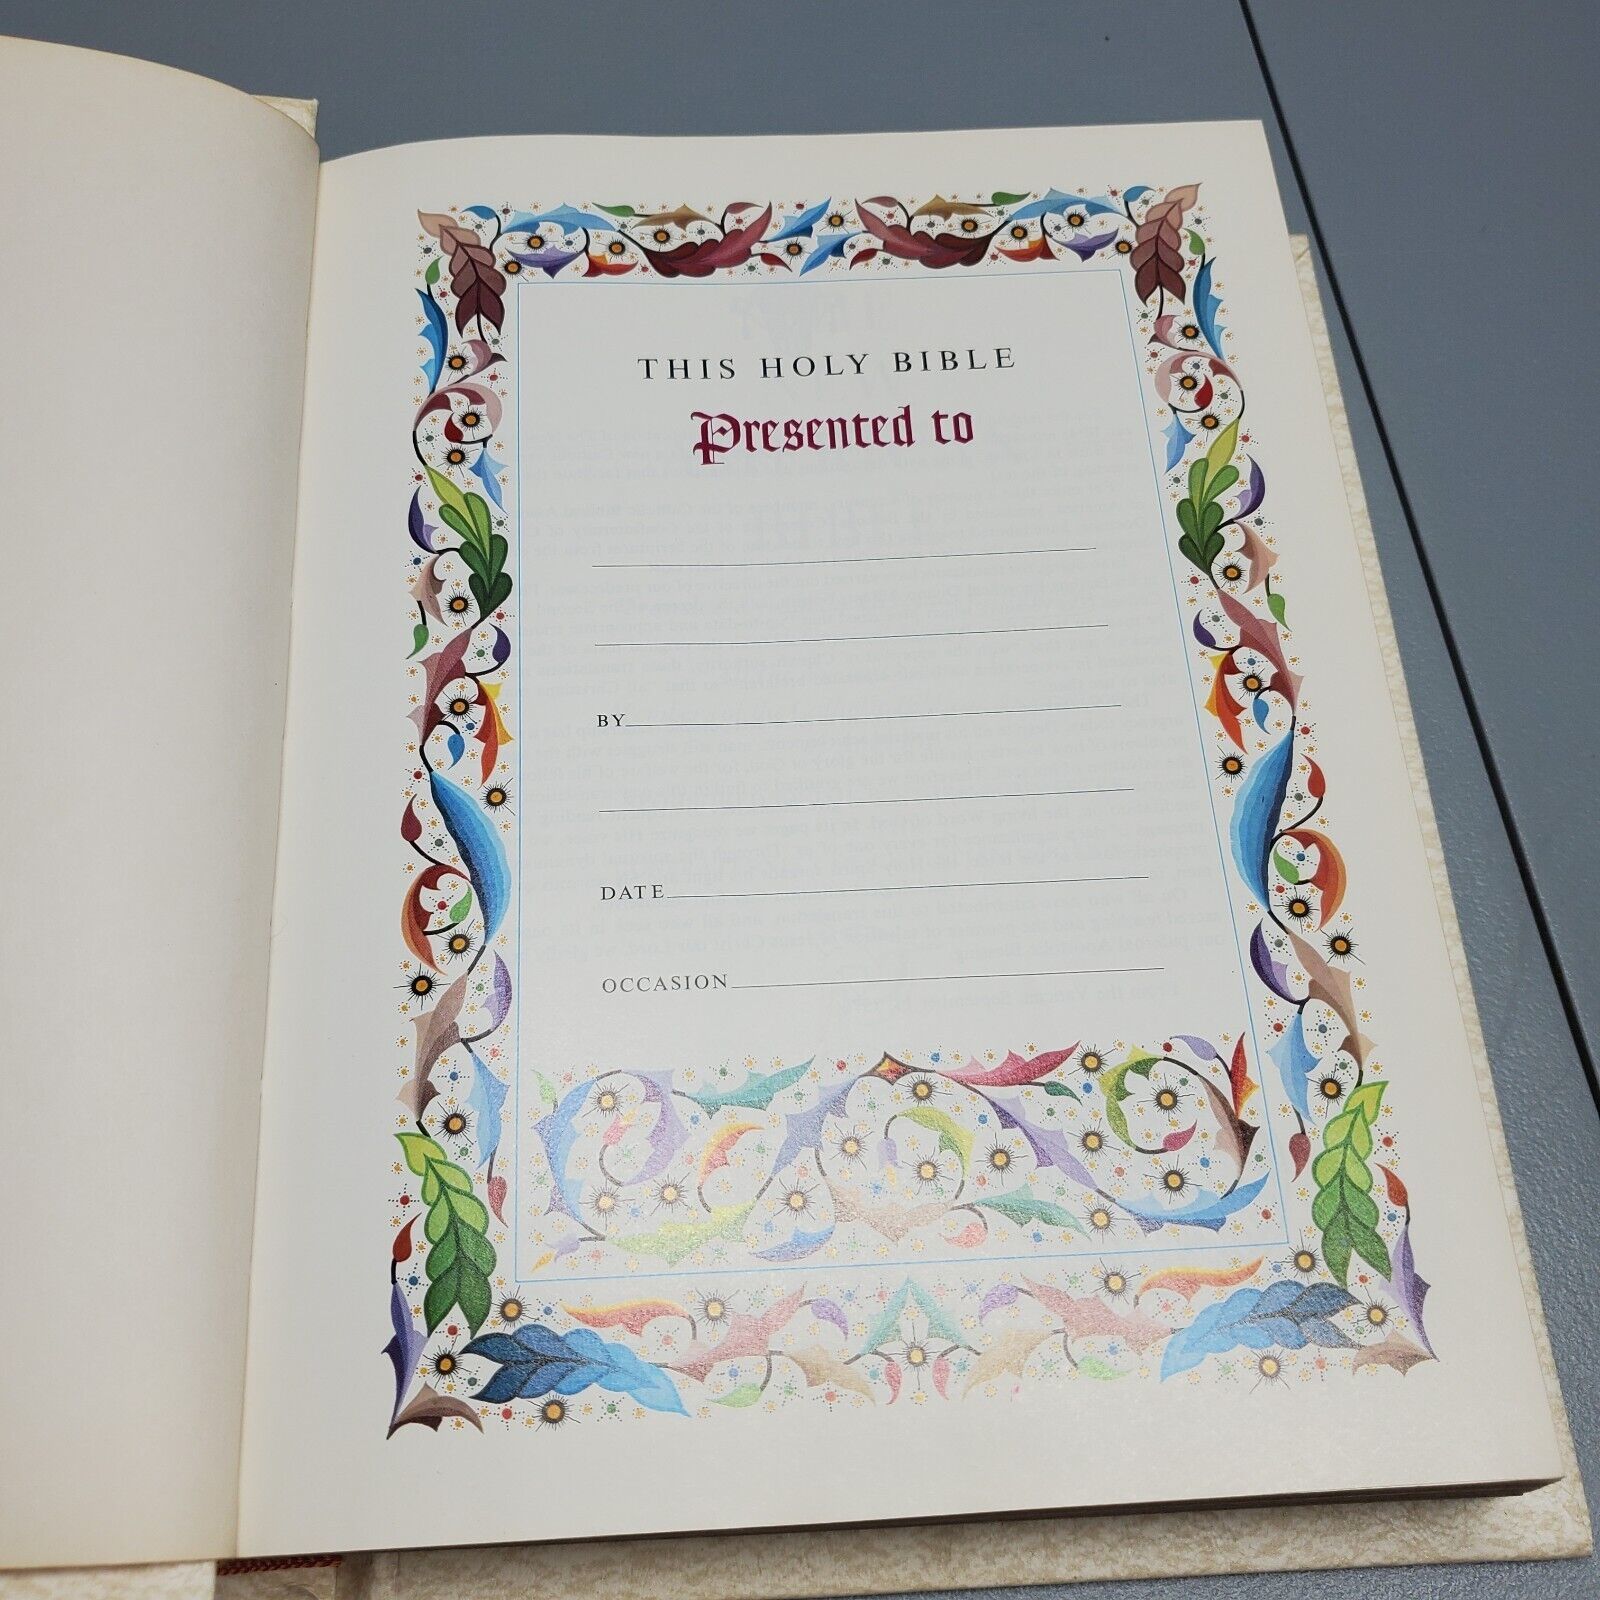 THIS HOLY BIBLE
Presented to
BY
DATE
OCCASION